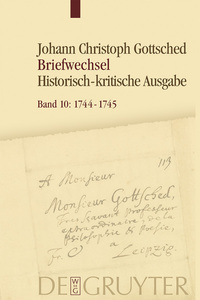 Johann Christoph Gottsched
Briefwechsel
Historisch-kritische Ausgabe
Band 10: 1744-1745
113
A Monsieur
Monsieur Gottsched,
Tres savant professeur
extraordinaire, de la
Philosophie & Poesie,
Fr. O a Leipzig.
W
DE
G
DE GRUYTER